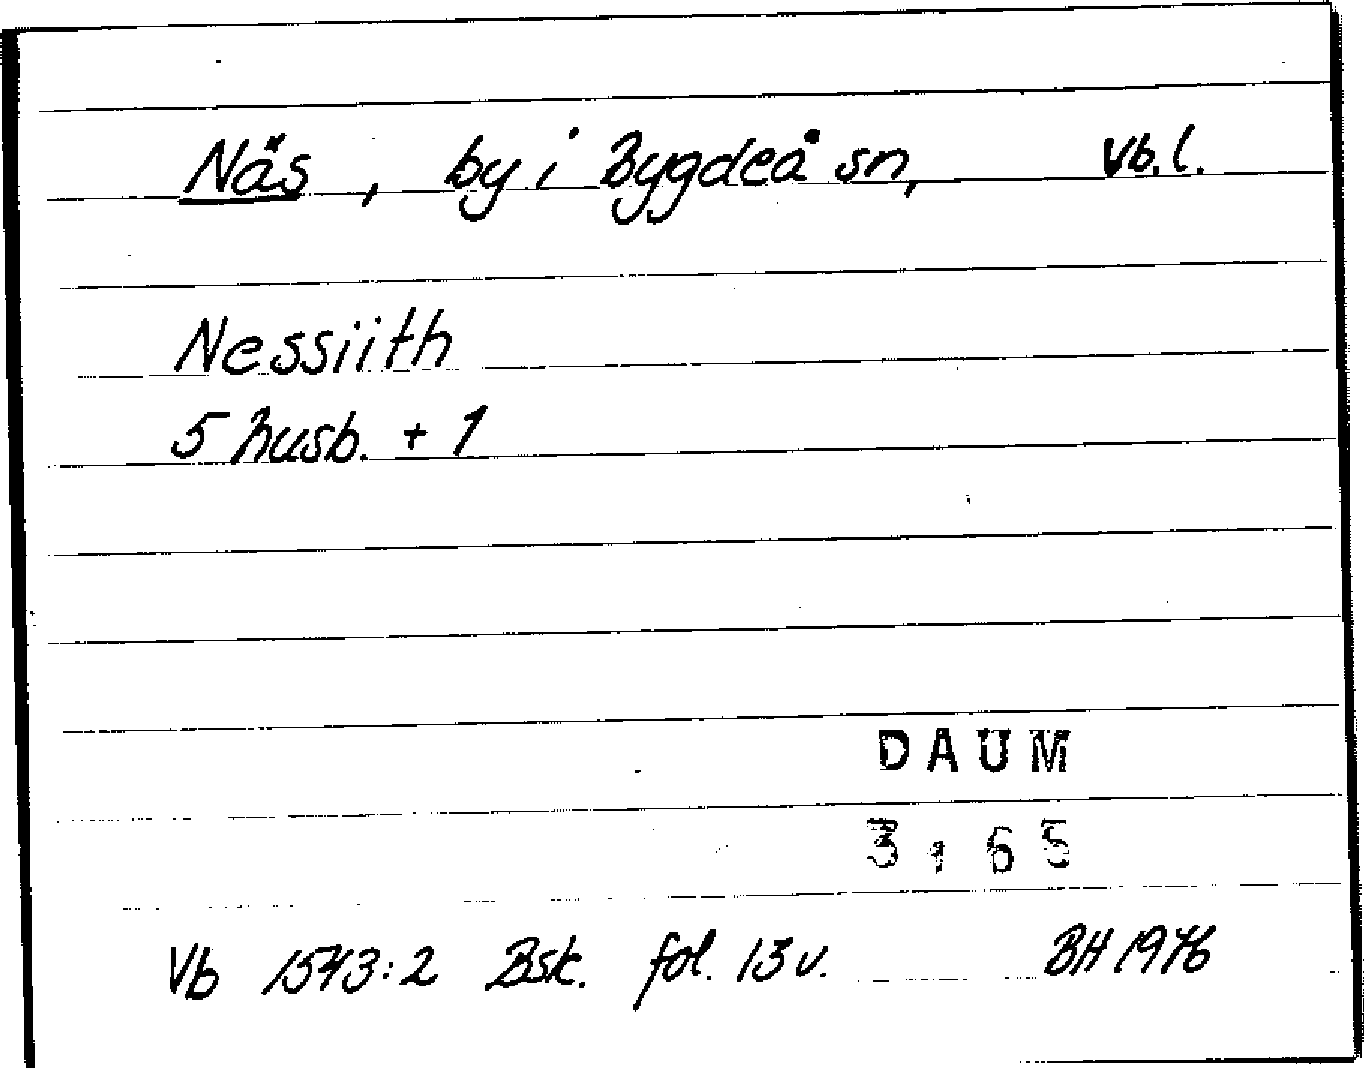 Näs, by i Bygdeå sn, Vb.l.
Nessiith
5 husb. + 1
DAUM
3165
Vb 1543:2 Bsk. fol. 13 v. BH 1976